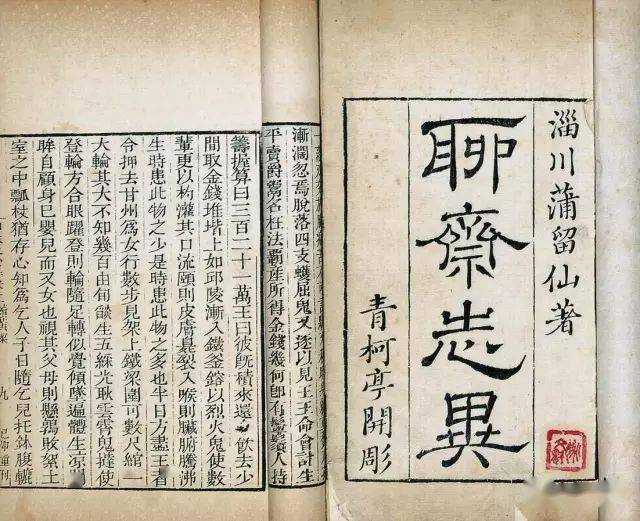 淄川蒲留仙著
聊齋志異
青柯亭開彫
漸濶忽焉脫落四支蠖屈鬼又逐以見王王命會計生
平賣爵鬻名枉法霸產所得金錢幾何卽有鬚人持
籌握算曰三百二十一萬王曰彼旣積來還飲去少
間取金錢堆堦上如邱陵漸入鐵釜鎔以烈火鬼使數
輩更以杓灌其口流頤則皮膚臭裂入喉則臟腑騰沸
生時患此物之少是時患此物之多也半日方盡王者
令押去甘州爲女行數步見架上鐵梁圍可數尺綰一
大輪其大不知幾百由旬燄生五綵光耿雲霄鬼撻使
登輪方合眼躍登則輪隨足轉似覺傾墜遍體生涼
眸自顧身已嬰兒而又女也視其父母則懸鶉敗絮土
室之中瓢杖猶存心知爲乞人子日隨乞兒托鉢腹轆
九